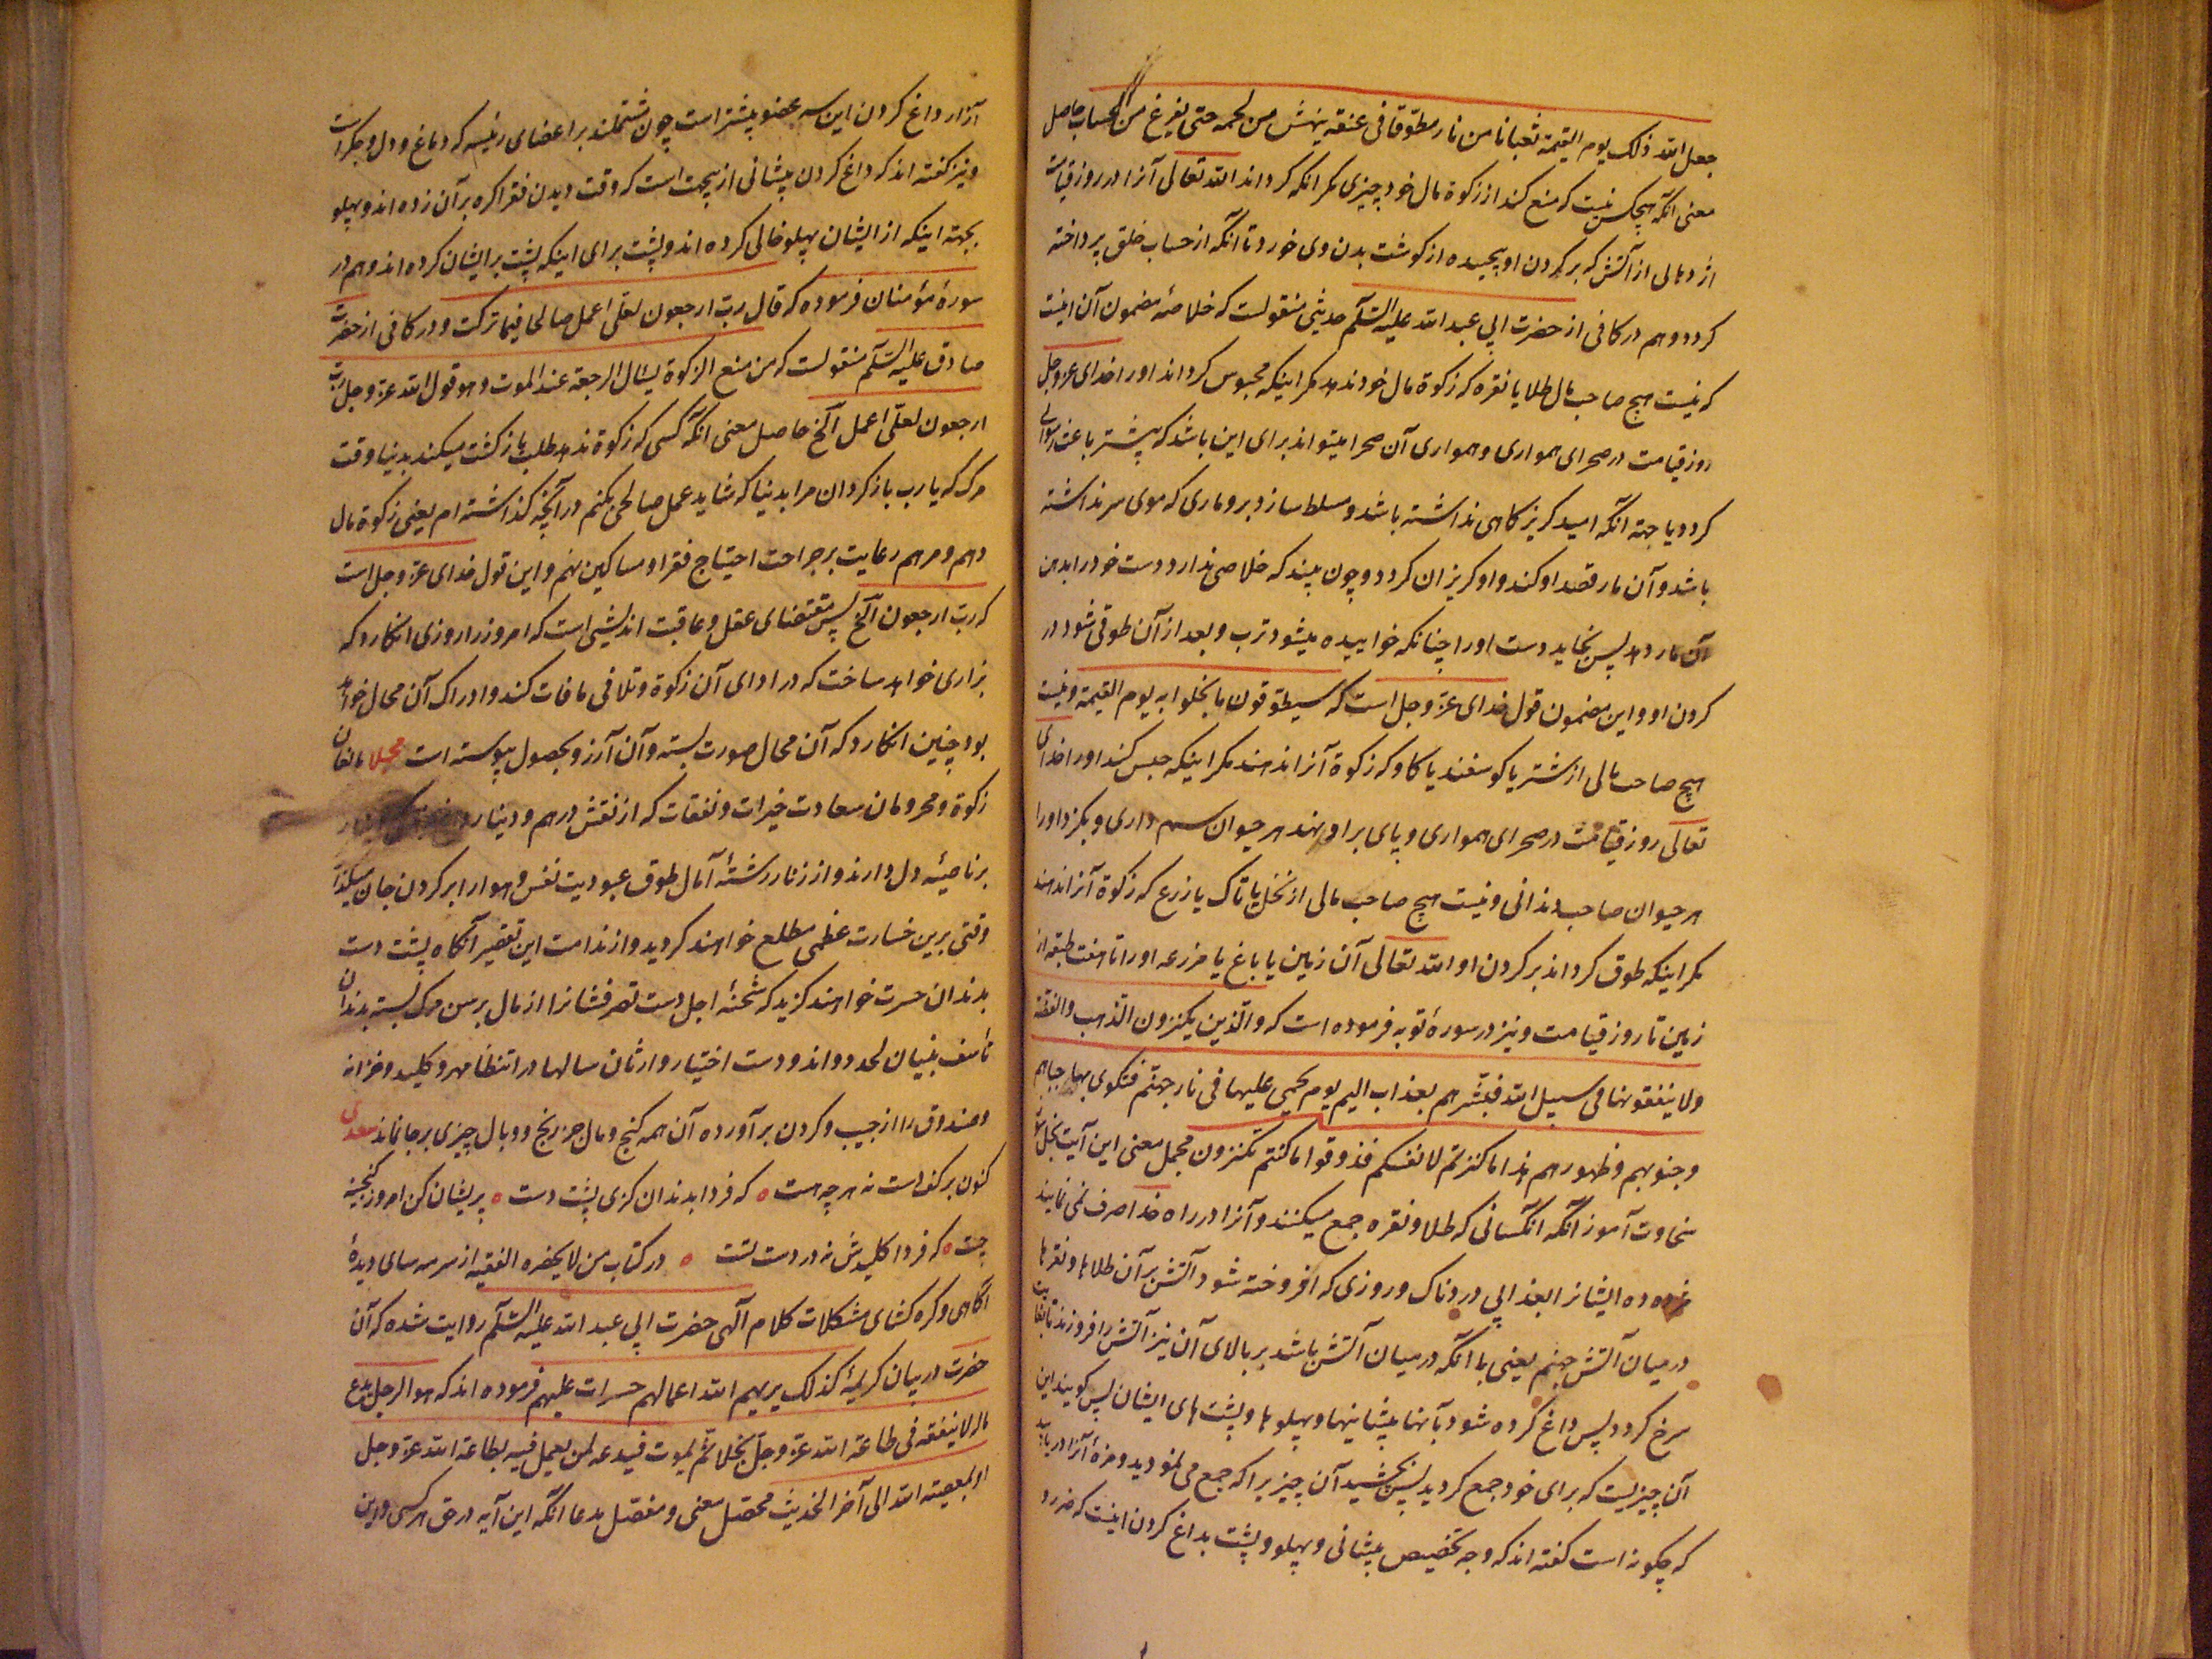 جعل الله ذلک یوم القیمة ثعبانا من نار مطوقا فی عنقه ینهش من لحمه حتی یفرغ من الحساب حاصل
معنی آنکه هیچکس نیست که منع کند از زکوة مال خود چیزی مکر انکه کرداند الله تعالی آنرا در روز قیامت
اژدهائی از آتش که بر کردن او پیچیده از کوشت بدن وی خورد تا آنکه از حساب خلق پرداخته
کردد و هم در کافی از حضرت ابی عبد الله علیه السّلم حدیثی منقولست که خلاصهٔ مضمون آن اینست
که نیست هیچ صاحب مال طلا یا نقره که زکوة مال خود ندهد مکر اینکه محبوس کرداند او را خدای عز و جل
روز قیامت در صحرای همواری و همواری آن صحرا میتواند برای این باشد که بیشتر باعث رسوائی
کردد یا جهة آنکه امید کریزکاهی نداشته باشد و مسلط سازد بر و ماری که موی سر نداشته
باشد و آن مار قصد او کند و او کریزان کردد و چون بیند که خلاصی ندارد دست خود را بدهن
آن مار دهد پس بخاید دست او را چنانکه خواییده میشود ترب و بعد از آن طوقی شود در
کردن او و این مضمون قول خدای عز و جل است که سیطوقون ما بخلوا به یوم القیمة و نیست
هیچ صاحب مالی از شتر یا کوسفند یا کاو که زکوة آنرا ندهند مکر اینکه حبس کند او را خدای
تعالی روز قیامت در صحرای همواری و پای بر او نهند هر حیوان سم داری و بکزد او را
هر حیوان صاحب دندانی و نیست هیچ صاحب مالی از نخل یا تاک یا زرع که زکوة آنرا ندهند
مکر اینکه طوق کرداند بر کردن او الله تعالی آن زمین یا باغ یا مزرعه او را تا هفت طبقه از
زمین تا روز قیامت و نیز در سورهٔ توبه فرموده است که و الّذین یکنزون الذهب و الفضة
ولا ینفقونها فی سبیل الله فبشّرهم بعذاب الیم یوم یحمی علیها فی نار جهنّم فتکوی بها جباههم
و جنوبهم و ظهورهم هذا ما کنزتم لانفسکم فذوقوا ما کنتم تکنزون مجمل معنی این آیت بخل سوز
سخاوت آموز آنکه آنکسانی که طلا و نقره جمع میکنند و آنرا در راه خدا صرف نمی نمایند
مژده ده ایشانرا بعذابی دردناک در روزی که افروخته شود آتش بر آن طلاها و نقرها
در میان آتش جهنم یعنی با آنکه در میان آتش باشد بر بالای آن نیز آتش را فروزند تا بغایت
سرخ کردد پس داغ کرده شود بآنها پیشانیها و پهلوها و پشت های ایشان پس کویند این
آن چیزیست که برای خود جمع کردید پس بچشید آن چیزیرا که جمع می نمودید و مزهٔ آنرا دریابید
که چکونه است کفته اند که وجه تخصیص پیشانی و پهلو و پشت بداغ کردن اینست که ضرر و
آزار داغ کردن این سه عضو بیشتر است چون مشتملند بر اعضای رئیسه که دماغ و دل و جکر است
و نیز کفته اند که داغ کردن پیشانی از بجهت است که وقت دیدن فقرا کره بر آن زده اند و پهلو
بجهة اینکه از ایشان پهلو خالی کرده اند و پشت برای اینکه پشت بر ایشان کرده اند و هم در
سورهٔ مؤمنان فرموده که قال رب ارجعون لعلّی اعمل صالحا فیما ترکت و در کافی از حضرت
صادق علیه السّلم منقولست که من منع الزکوة یسئال الرجعة عند الموت و هو قول الله عز و جل رب
ارجعون لعلّی اعمل آلخ حاصل معنی آنکه کسی که زکوة ندهد طلب بازکشت میکند بدنیا وقت
مرک که یا رب بازکردان مرا بدنیا که شاید عمل صالحی بکنم در آنچه کذاشته ام یعنی زکوة مال
دهم و مرهم رعایت بر جراحت احتیاج فقرا و مساکین نهم و این قول خدای عز و جل است
که رب ارجعون آلخ پس مقتضای عقل و عاقبت اندیشی است که امروز را روزی انکارد که
بزاری خواهد ساخت که در ادای آن زکوة و تلافی ما فات کند و ادراک آن محال خواهد
بود چنین انکارد که آن محال صورت بسته و آن آرزو بحصول پیوسته است مجملا مانعان
زکوة و محرومان سعادت خیرات و نفقات که از نقش درهم و دینار
بر ناصیهٔ دل دارند و از زنار رشتهٔ آمال طوق عبودیت نفس و هوا را بر کردن جان میکنند
وقتی برین خسارت عظمی مطلع خواهند کردید و از ندامت این تقصیر آنکاه پشت دست
بدندان حسرت خواهند کزید که شحنهٔ اجل دست تصرفشانرا از مال بر سن مرک بسته بدندان
تأسف بنیان لحد دواند و دست اختیار وارثان سالها در انتظار مهر و کلید و خزانه
و صندوق را از جیب و کردن بر آورده آن همه کنج و مال جز رنج و وبال چیزی بر جا نماند سعدی
کنون بر کف دست نه هر چه هست ۰ که فردا بدندان کزی پشت دست ۰ پریشان کن امروز کنجینه
چست ۰ که فردا کلیدش نه در دست تست ۰ در کتاب من لا یحضره الفقیه از سرمه سای دیدهٔ
آکاهی و کره کشای مشکلات کلام آلهی حضرت ابی عبد الله علیه السّلم روایت شده که آن
حضرت در بیان کریمهٔ کذلک یریهم الله اعمالهم حسرات علیهم فرموده اند که هو الرجل یدع
مال لا ینفقه فی طاعة الله عز و جل بخلا ثمّ یموت فیدعه لمن یعمل فیه بطاعة الله عز و جل
او بمعصیة الله الی آخر الحدیث محصّل معنی و مفصّل مدعا آنکه این آیه در حق هر کسی